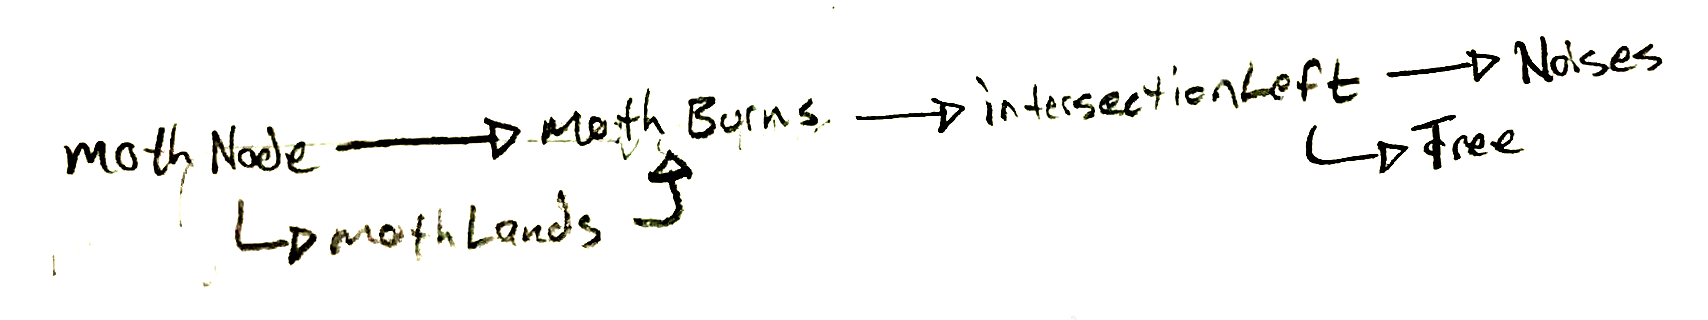 moth Node → moth Burns → intersectionLeft → Noises
↳ mothLands ↑ ↳ Tree